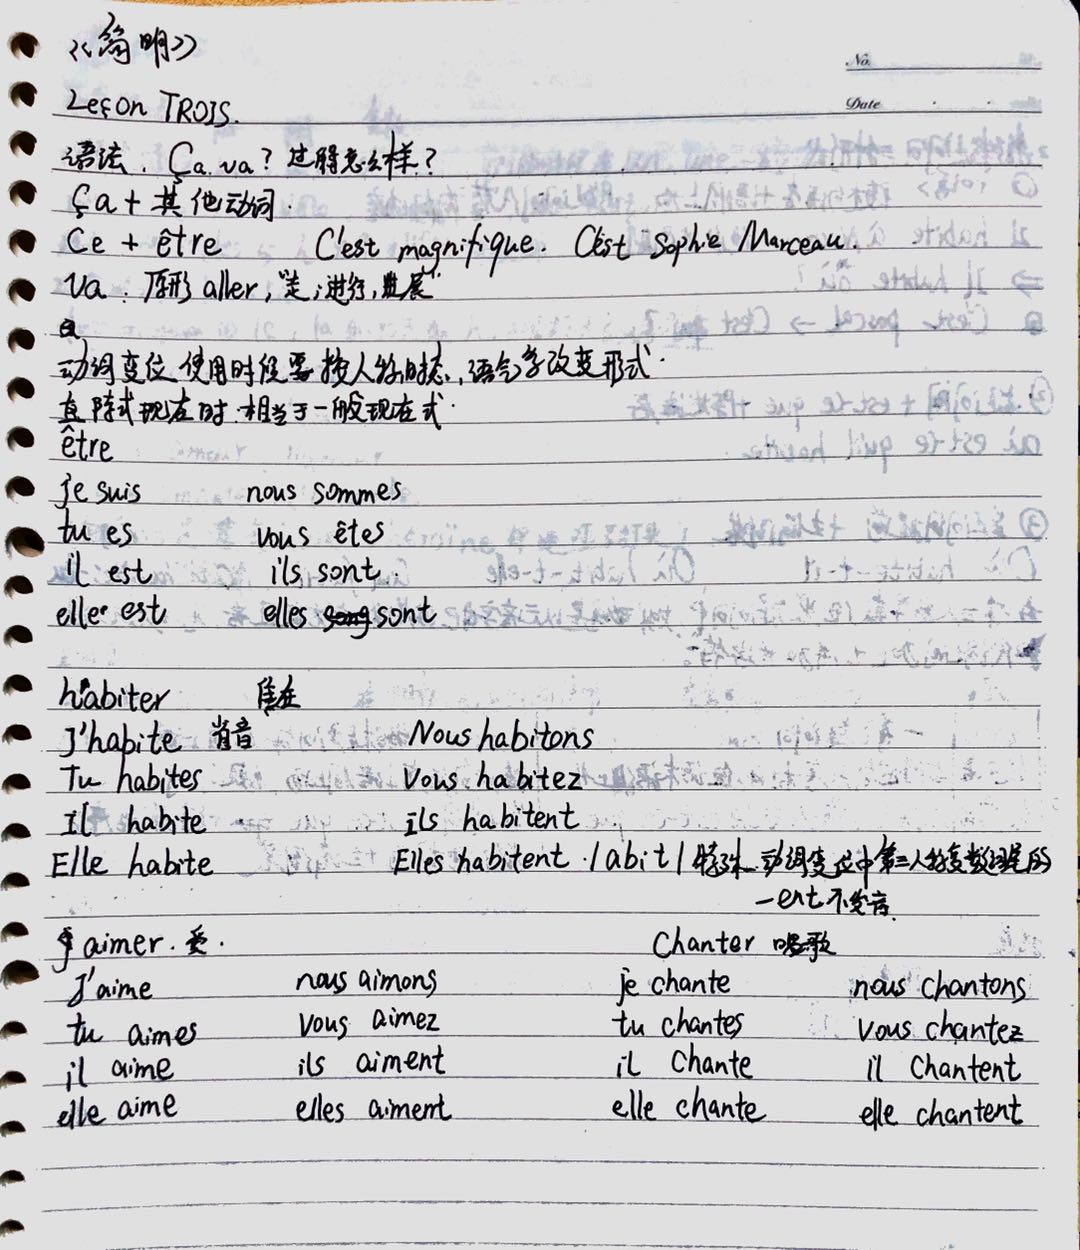 《简明》
No.
Leçon TROIS.
Date
语法. Ça va? 过得怎么样?
Ça + 其他动词.
Ce + être C'est magnifique. C'est Sophie Marceau.
Va: 原形 aller, "走, 进行, 进展"
动词变位 使用时候要按人称,时态,语气等改变形式.
直陈式现在时 相当于一般现在式.
être
je suis nous sommes
tu es vous êtes
il est ils sont.
elle est elles sont
habiter 居住
J'habite 省音 Nous habitons
Tu habites Vous habitez
Il habite ils habitent
Elle habite Elles habitent /abit/ 特殊 动词变位中第三人称复数词尾的
-ent不发音.
aimer. 爱. Chanter 唱歌
J'aime nous aimons je chante nous chantons
tu aimes vous aimez tu chantes vous chantez
il aime ils aiment il chante il chantent
elle aime elles aiment elle chante elle chantent